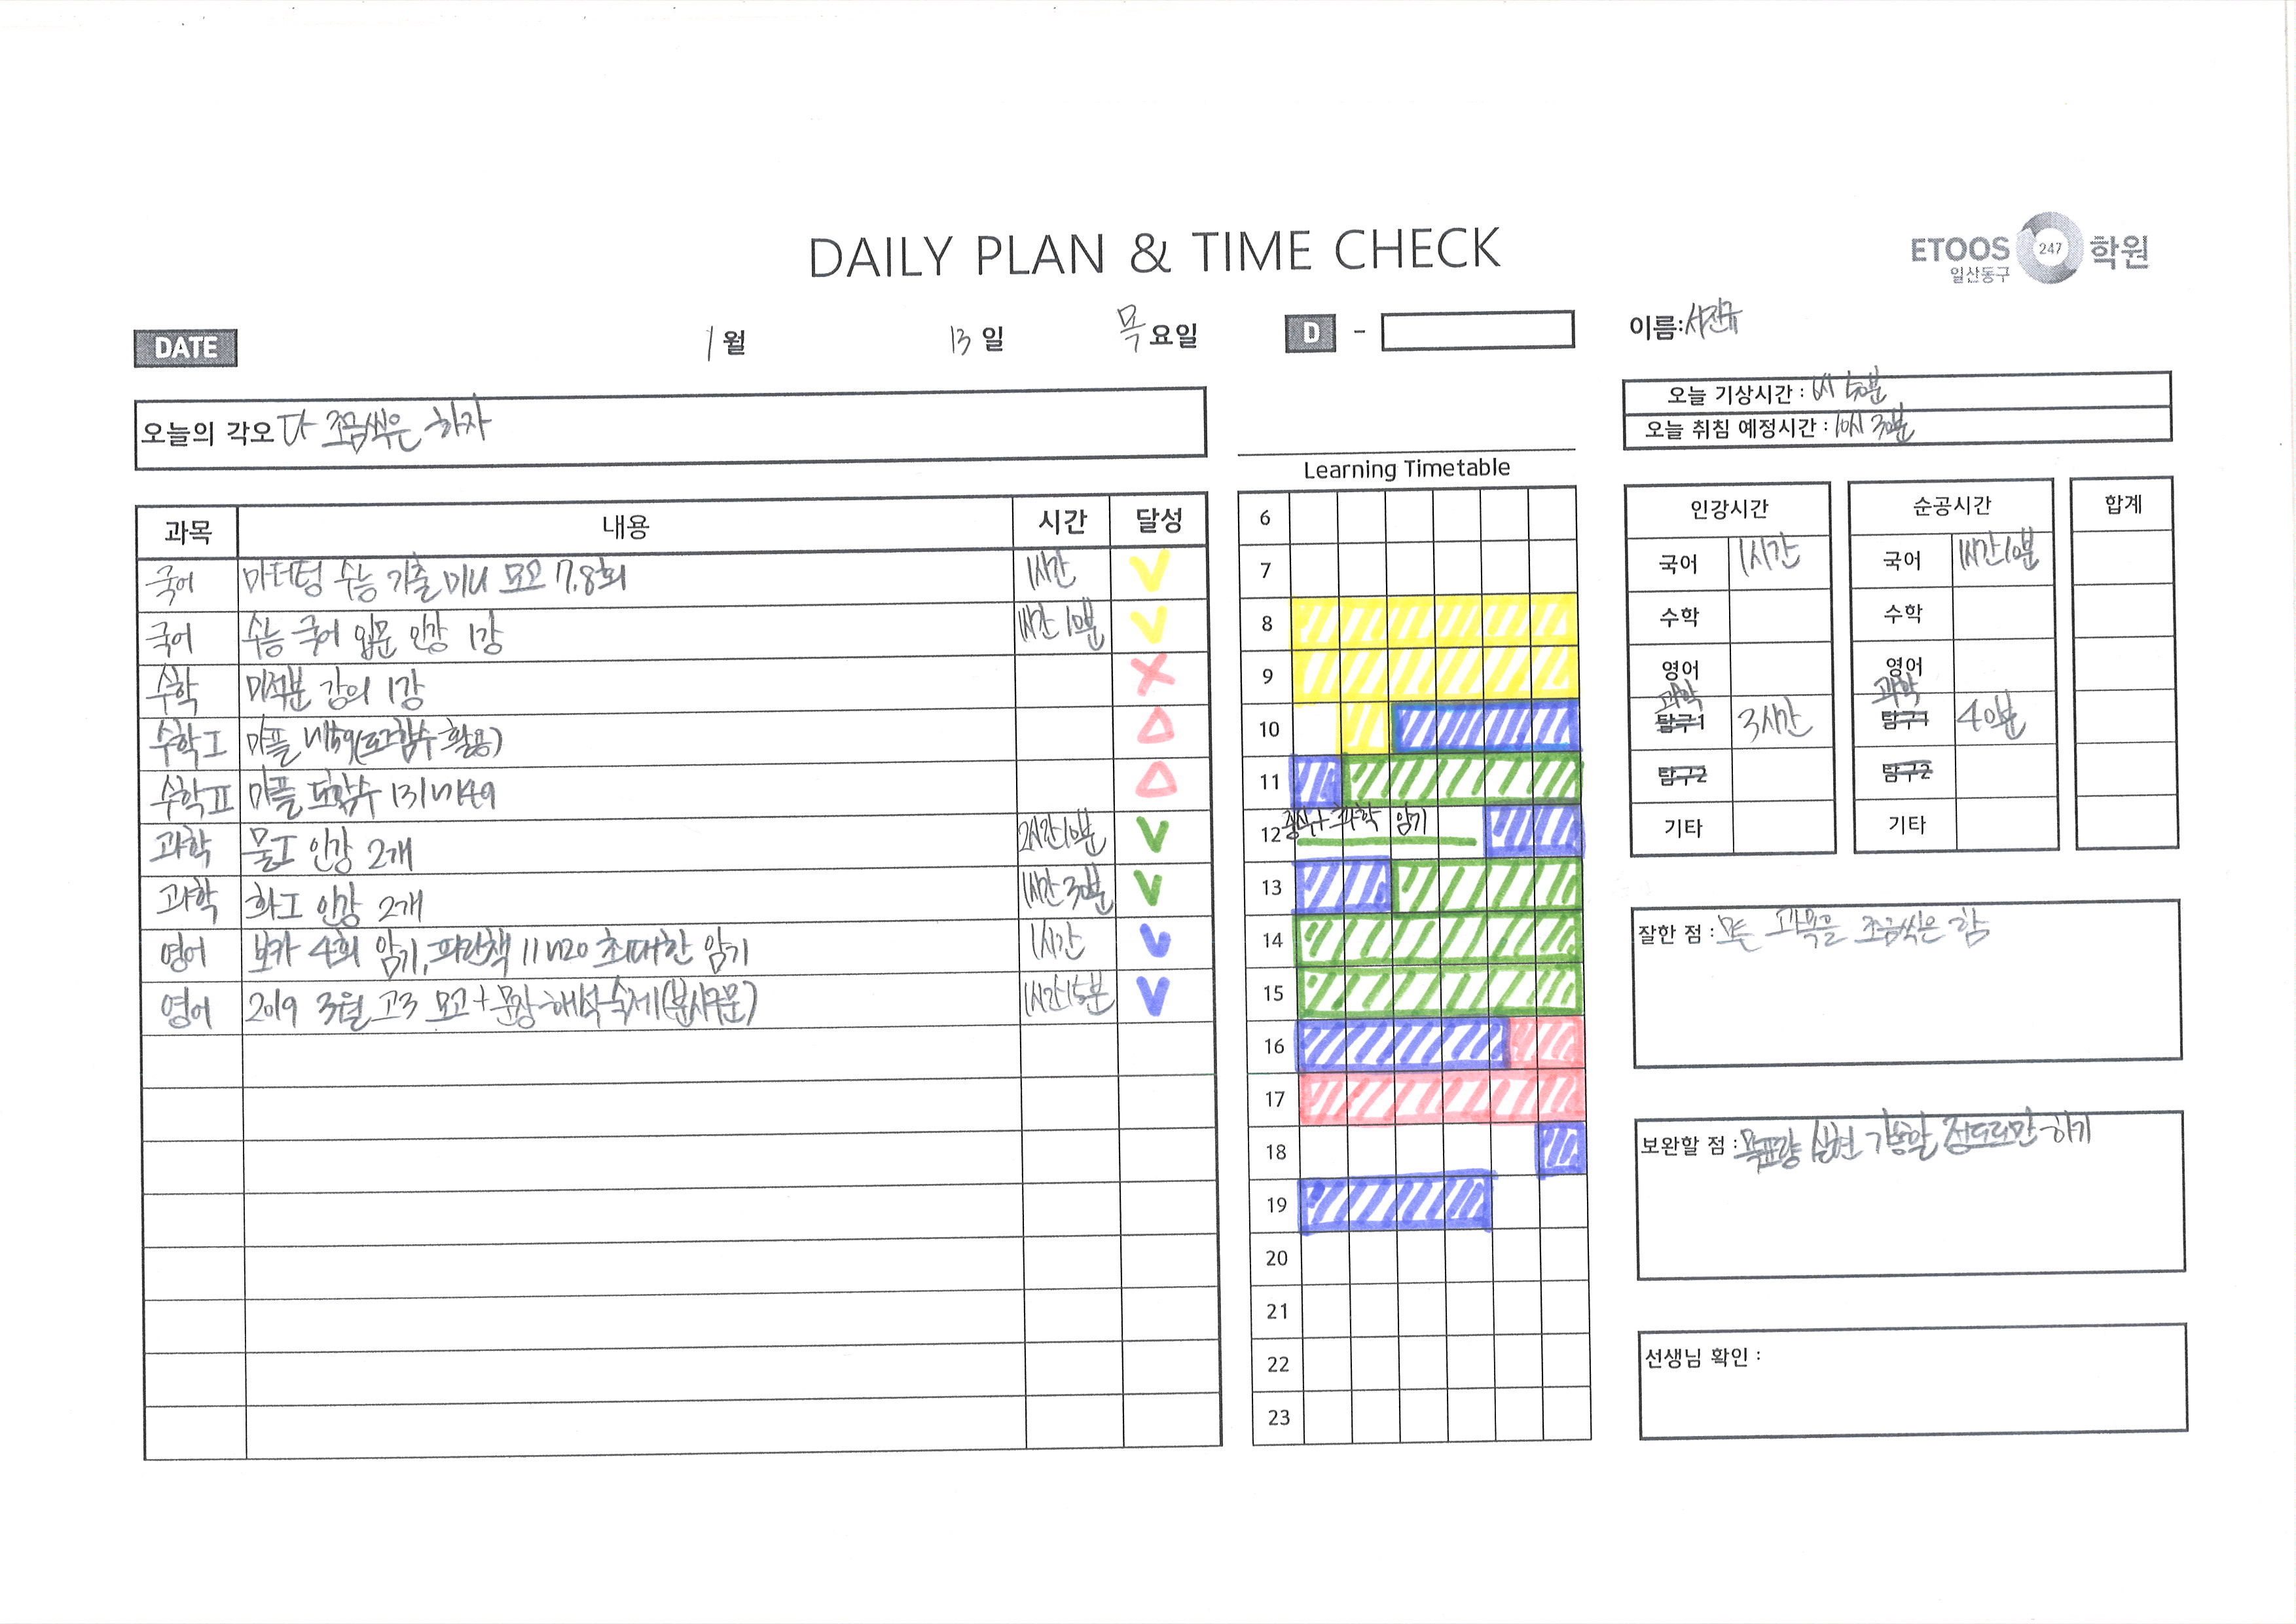 DAILY PLAN & TIME CHECK
ETOOS 247 학원
일산동구
DATE 1월 13일 목요일 D -
이름:
오늘의 각오 다 조금씩은 하자
오늘 기상시간 : 6시 50분
오늘 취침 예정시간 : 10시 30분
과목 내용 시간 달성
국어 마더텅 수능 기출 미니 모고 7,8회 1시간 V
국어 수능 국어 입문 인강 1강 1시간 10분 V
수학 미적분 강의 1강 X
수학I 마플 (프 함수 활용) △
수학II 마플 도함수 131~149 △
과학 물I 인강 2개 2시간 10분 V
과학 화I 인강 2개 1시간 30분 V
영어 보카 4회 암기, 파란책 11~20 최대한 암기 1시간 V
영어 2019 3월 고3 모고 + 문장해석숙제(분사구문) 1시간 15분 V
Learning Timetable
6
7
8
9
10
11
12 중식+과학 암기
13
14
15
16
17
18
19
20
21
22
23
인강시간
국어 1시간
수학
영어
과학
탐구1 3시간
탐구2
기타
순공시간
국어 1시간 10분
수학
영어
과학
탐구1 40분
탐구2
기타
합계
잘한 점 : 모든 과목을 조금씩은 함
보완할 점 : 목표량 실현 가능할 정도만 하기
선생님 확인 :